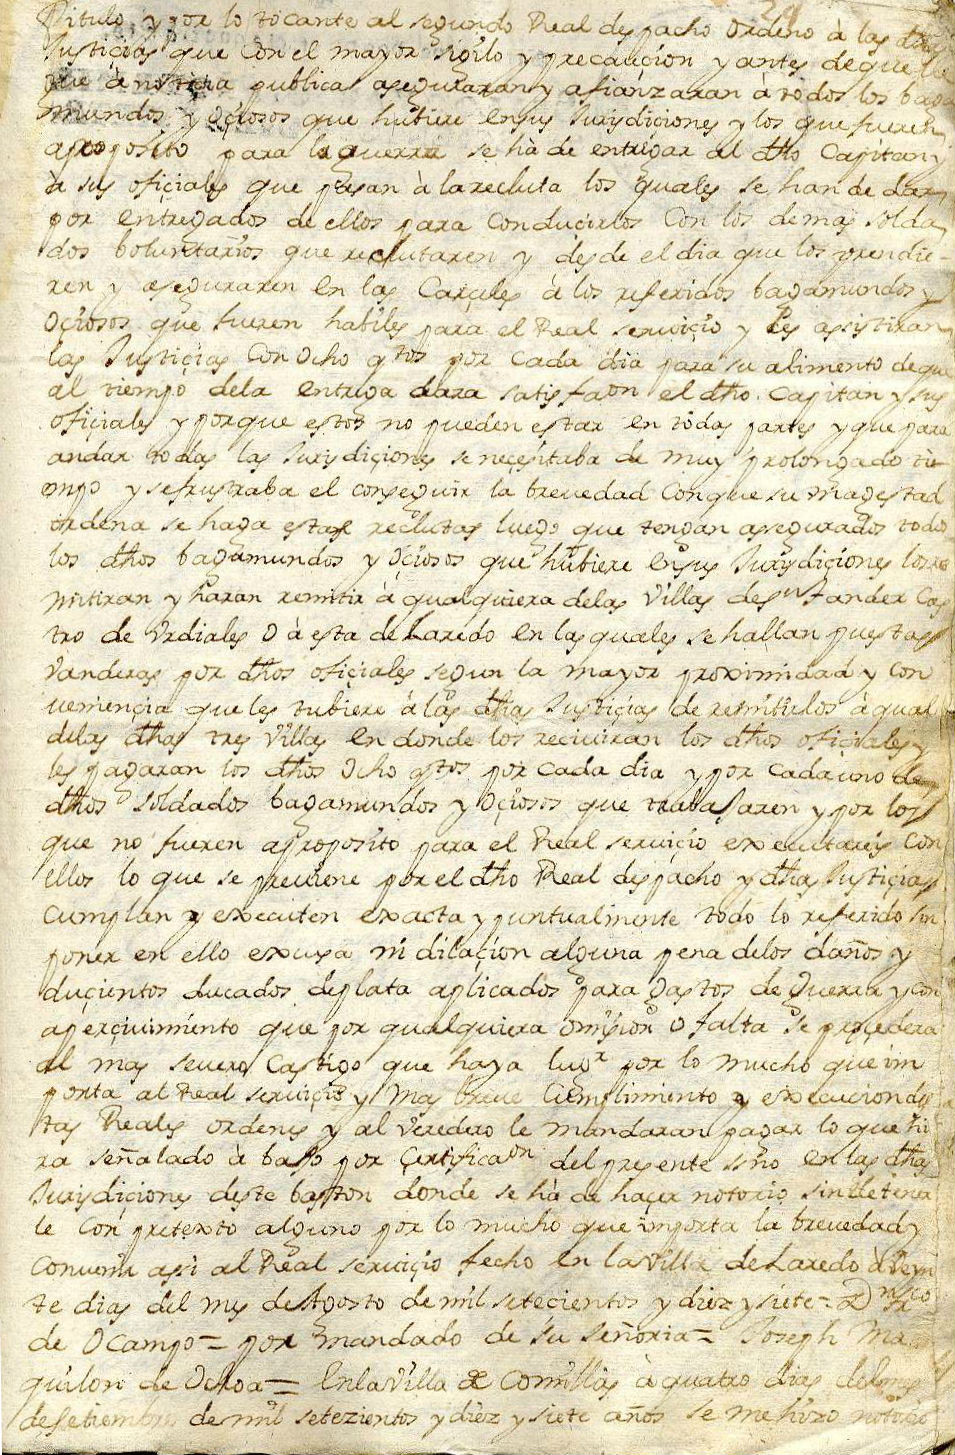 Titulo y por lo tocante al segundo Real despacho ordeno à las dhas
Justiçias que con el mayor sigilo y precauçion y antes de que
que à notiçia publica aseguraran y afianzaran à todos los baga
mundos y oçiosos que hubiere en sus Jurisdiçiones y los que fueren
aproposito para la guerra se hà de entregar al dho Capitan y
à sus ofiçiales que pasan à la recluta los quales se han de dar
por entregados de ellos para conduçirlos con los demas solda
dos boluntarios que reclutaren y desde el dia que los prendie-
ren y aseguraren en las Carçeles à los referidos bagamundos y
oçiosos que fueren habiles para el Real serviçio y les asistiran
las Justiçias con ocho qtos por cada dia para su alimento de que
al tiempo dela entrega dara satisfaon el dho Capitan y sus
ofiçiales y porque estos no pueden estar en todas partes y que para
andar todas las Jurisdiçiones se neçesitaba de muy prolongado tie
mpo y se frustraba el conseguir la brevedad conque su Magestad
ordena se haga estas reclutas luego que tengan asegurados todos
los dhos bagamundos y oçiosos que hubiere en sus Jurisdiçiones los re
mitiran y haran remitir à qualquiera delas Villas de Sn tander Cas
tro de Urdiales o à esta de Laredo en las quales se hallan puestas
Vanderas por dhos ofiçiales segun la mayor proximidad y con
ueniençia que les tubiere à las dhas Justiçias de remitirlos à qual
delas dhas tres Villas en donde los reciviran los dhos ofiçiales y
les pagaran los dhos ocho qtos por cada dia y por cada uno de
dhos soldados bagamundos y oçiosos que trabaJaren y por los
que no fueren aproposito para el Real serviçio executareis con
ellos lo que se previene por el dho Real despacho y dhas Justiçias
cumplan y executen exacta y puntualmente todo lo referido sin
poner en ello excusa ni dilaçion alguna pena delos daños y
duçientos ducados de plata aplicados para gastos de guerra y con
aperçivimiento que por qualquiera omision o falta se proçedera
al mas severo castigo que haya lugr por lo mucho que im
porta al Real serviçio y mas breve Cumplimiento y execucion de
tas Reales ordenes y al Veredero le mandaran pagar lo que hi
ra señalado à baJo por çertificaon del presente sno en las dhas
Jurisdiçiones deste baston donde se hà de haçer notorio sin detener
le con pretexto alguno por lo mucho que importa la brevedad y
convenir asi al Real serviçio fecho en la Villa de Laredo à Vein
te dias del mes de Agosto de mil setecientos y diez y siete = Dn
de Ocampo = por mandado de su señoria = Joseph Ma
quilon de Ochoa = En la Villa de Comillas à quatro dias del mes
de Setiembre de mil setezientos y diez y siete años se me hizo notorio